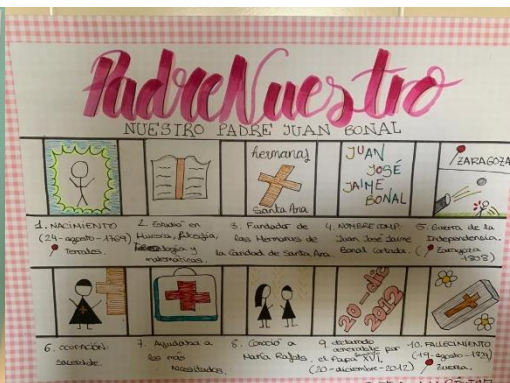 PadreNuestro
NUESTRO PADRE JUAN BONAL
hermanas
Santa Ana
JUAN
JOSÉ
JAIME
BONAL
ZARAGOZA
1. NACIMIENTO
(24-agosto-1769)
Terrades.
2. Estudió en
Huesca, filosofía,
teología y
matemáticas.
3. Fundador de
las Hermanas de
la Caridad de Santa Ana.
4. NOMBRE COMP.
Juan José Jaime
Bonal Cortada.
5. Guerra de la
Independencia.
(Zaragoza
1808)
20-dic
2012
6. OCUPACIÓN.
sacerdote.
7. Ayudaba a
los más
necesitados.
8. Conoció a
María Ràfols.
9. declarado
venerable por
el Papa XVI,
(20-diciembre-2012)
10. FALLECIMIENTO
(19-agosto-1829)
Zuera.